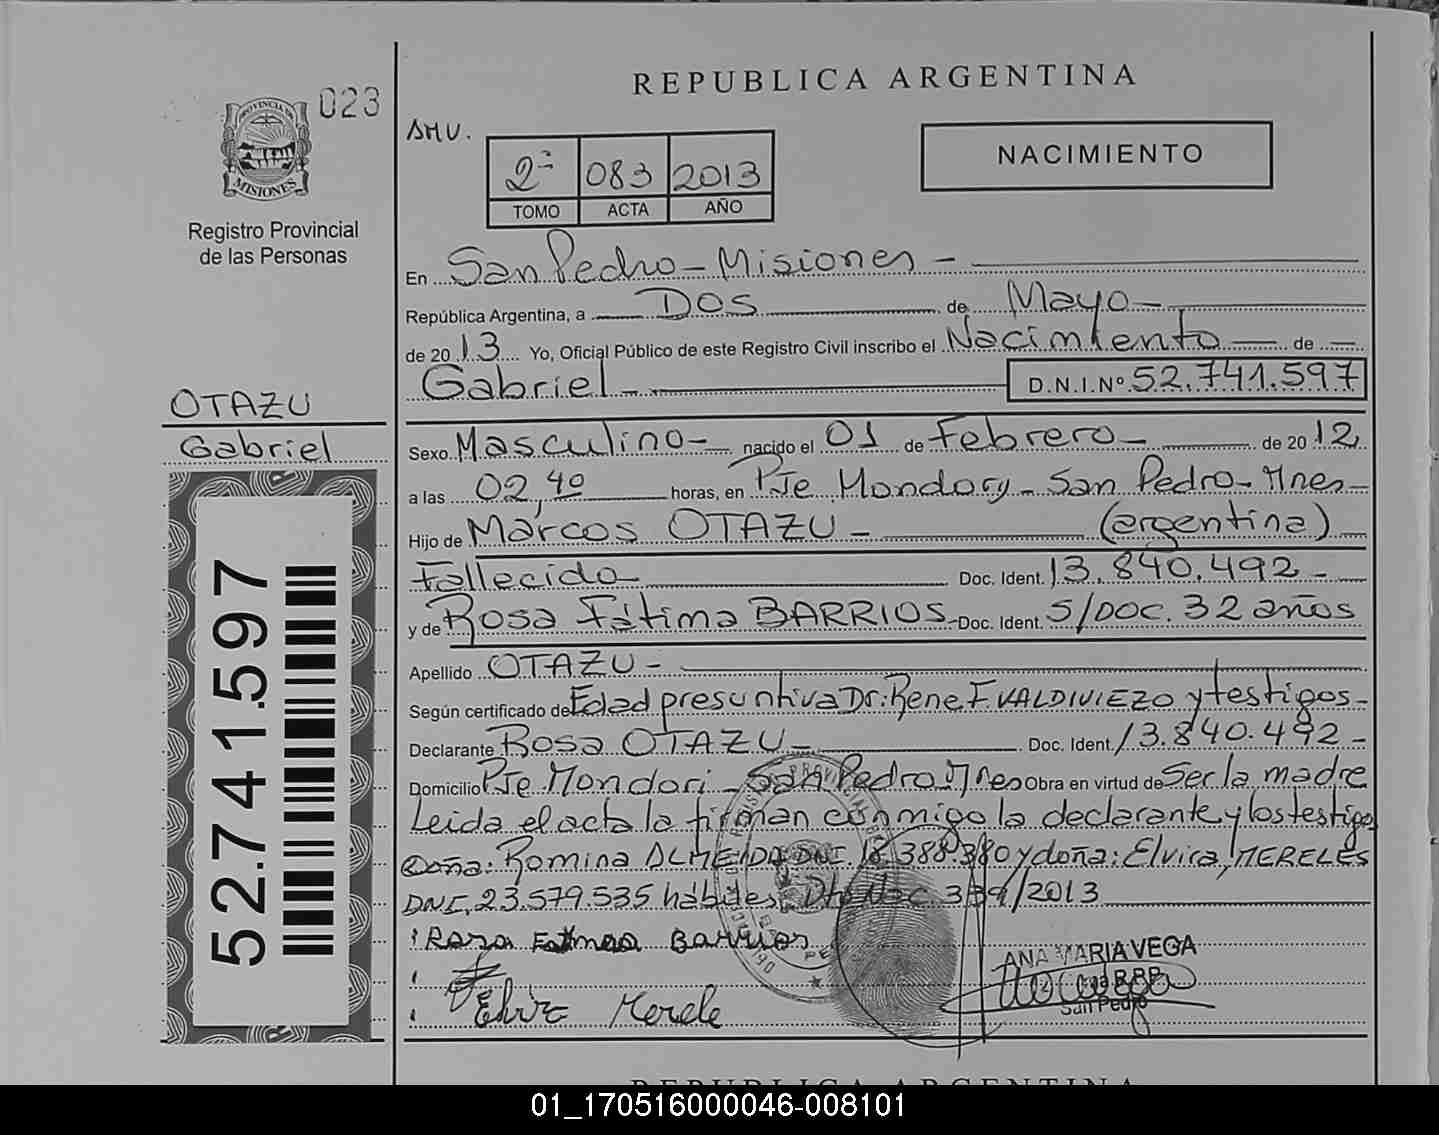 REPUBLICA ARGENTINA
023
PROVINCIA DE
MISIONES
Registro Provincial
de las Personas
2ª 083 2013
TOMO ACTA AÑO
NACIMIENTO
En San Pedro - Misiones -
República Argentina, a Dos de Mayo -
de 2013 Yo, Oficial Público de este Registro Civil inscribo el Nacimiento de
Gabriel - D.N.I.Nº 52.741.597
OTAZU
Gabriel
Sexo Masculino - nacido el 01 de Febrero - de 2012
a las 02,40 horas, en Pje Mondory - San Pedro - Mnes -
Hijo de Marcos OTAZU - (argentina)
Fallecido Doc. Ident. 13.840.492 -
y de Rosa Fátima BARRIOS - Doc. Ident. S/DOC. 32 años
Apellido OTAZU -
Según certificado de Edad presuntiva Dr: Rene F. VALDIVIEZO y testigos -
Declarante Rosa OTAZU - Doc. Ident. 13.840.492 -
Domicilio Pje Mondori - San Pedro Mnes Obra en virtud de Ser la madre
Leida el acta la firman conmigo la declarante y los testigo
Doña: Romina ALMEIDA DNI. 18.388.380 y doña: Elvira MERELES
DNI. 23.579.535 hábiles 339/2013
Rosa Barrios
Elvira Merele
ANA MARIA VEGA
San Pedro
52.741.597
REPUBLICA ARGENTINA
01_170516000046-008101